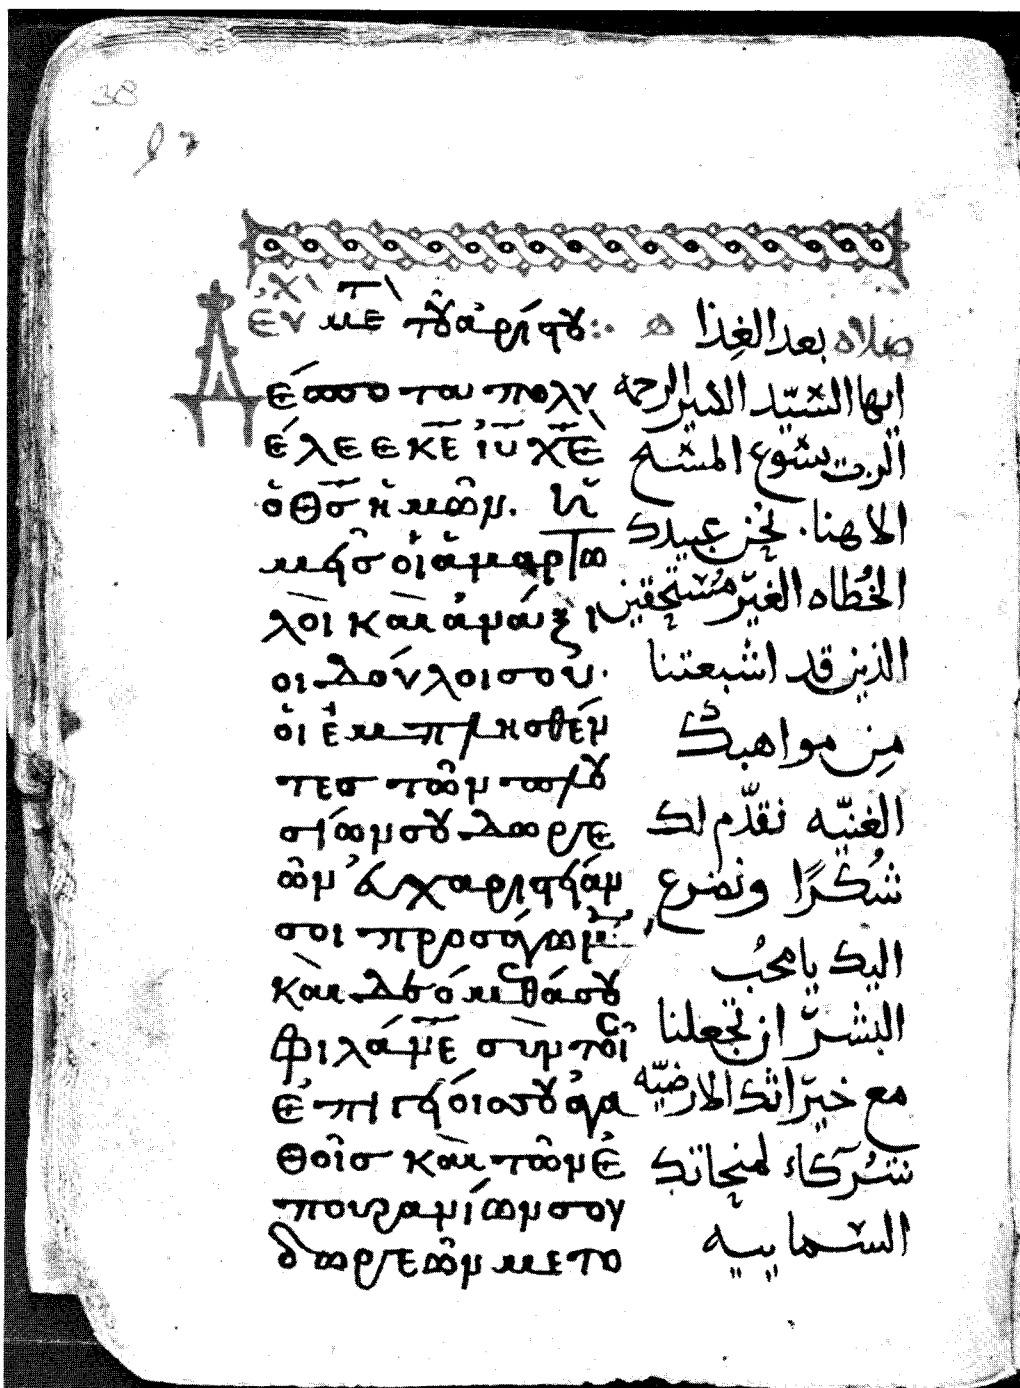 38
Εὐχὶ μετ τοῦ ἀρίστου:·
Δέσποτα πολυ
έλεε κε ιυ χε
ὁ θς ἡμῶν. ἡ
μεῖσ οἱ ἁμαρτω
λοὶ καὶ ἀνάξι
οι δοῦλοι σου.
οἱ ἐμπλησθέν
τεσ τῶν πλου
σίων σου δωρε
ῶν εὐχαριστίαν
σοι προσάγωμεν
καὶ δεόμεθά σου
φιλάνε σὺν τοῖς
ἐπιγείοισ σου ἀγα
θοῖσ καὶ τῶν ἐ
πουρανίων σου
δωρεῶν μετο
صلاه بعد الغذا ه
ايها السيّد الكثير الرحمه
الرب يسوع المسيح
الاهنا. نحن عبيدك
الخُطاه الغيّر مُستحقين
الذين قد اشبعتنا
مِن مواهبك
الغنيّه نقدّم لك
شُكرًا ونضرع
اليك يا محبُ
البشر ان تجعلنا
مع خيّراتك الارضيّه
شركاء لمنحاتك
السماييه